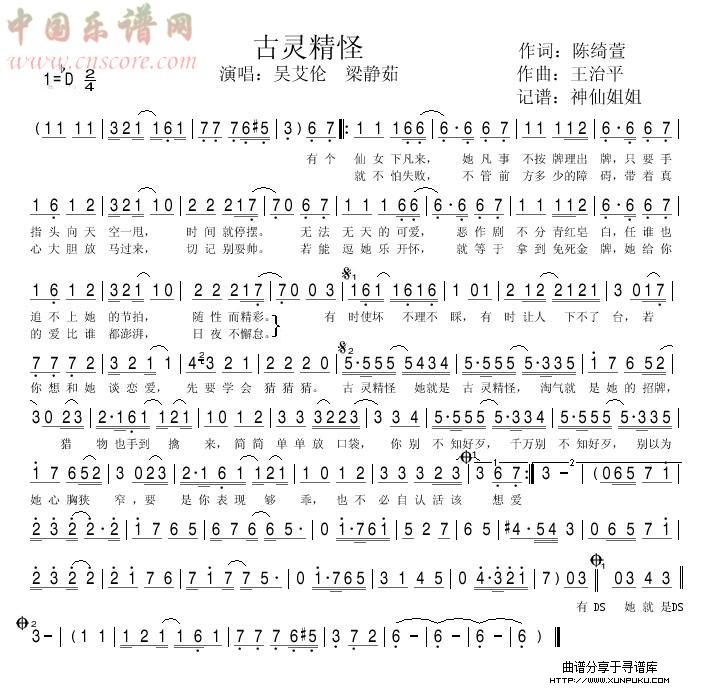 中国乐谱网
www.cnscore.com
古灵精怪
1=♭D 2/4
演唱：吴艾伦 梁静茹
作词：陈绮萱
作曲：王治平
记谱：神仙姐姐
(11 11 | 321 161 | 77 76#5 | 3) 67 |: 1 1 166 | 6·667 | 11 112 | 6·667 |
有个 仙女下凡来， 她凡事 不按牌理出 牌，只要手
就不怕失败， 不管前 方多少的障 碍，带着真
1612 | 3210 1 | 22217 | 7067 | 11166 | 6·667 | 11112 | 6·667 |
指头向天 空一甩， 时间就停摆。 无法 无天的可爱， 恶作剧 不分青红皂 白，任谁也
心大胆放 马过来， 切记别耍帅。 若能 逗她乐开怀， 就等于 拿到免死金 牌，她给你
1612 | 32101 | 22217 | 7003 | 161 1616 | 101 | 212 2121 | 3017 |
追不上她 的节拍， 随性而精彩。 有 时使坏 不理不 睬，有 时让人 下不了 台，若
的爱比谁 都澎湃， 日夜不懈怠。
7772 | 3211 | 4321 | 222 | 5·555 5434 | 5·555 5·335 | 17652 |
你想和她 谈恋爱， 先要学会 猜猜猜。 古灵精怪 她就是 古灵精怪， 淘气就 是她的招牌，
3023 | 2·161 121 | 1023 | 3323 | 334 | 5·555 5·335 | 5·555 5·335 |
猎 物也手到 擒 来，简简 单单放 口袋， 你别 不知好歹， 千万别 不知好歹， 别以为
17652 | 3023 | 2·161 121 | 1023 | 33323 | 367 :| 3-2 | (06571 |
她心胸狭 窄，要 是你表现 够 乖，也不 必自认活该 想爱
2322· | 21765 | 67665· | 01·761 | 517 65 | #4·543 | 06571 |
2322 | 2176 | 71775· | 01·765 | 3145 | 04·321 | 7)03 ‖ 0343 ‖
有DS 她就是DS
3- | (11 | 321 161 | 7776#5 | 3772 | 6- | 6- | 6- | 6) ‖
曲谱分享于寻谱库
HTTP://WWW.XUNPUKU.COM